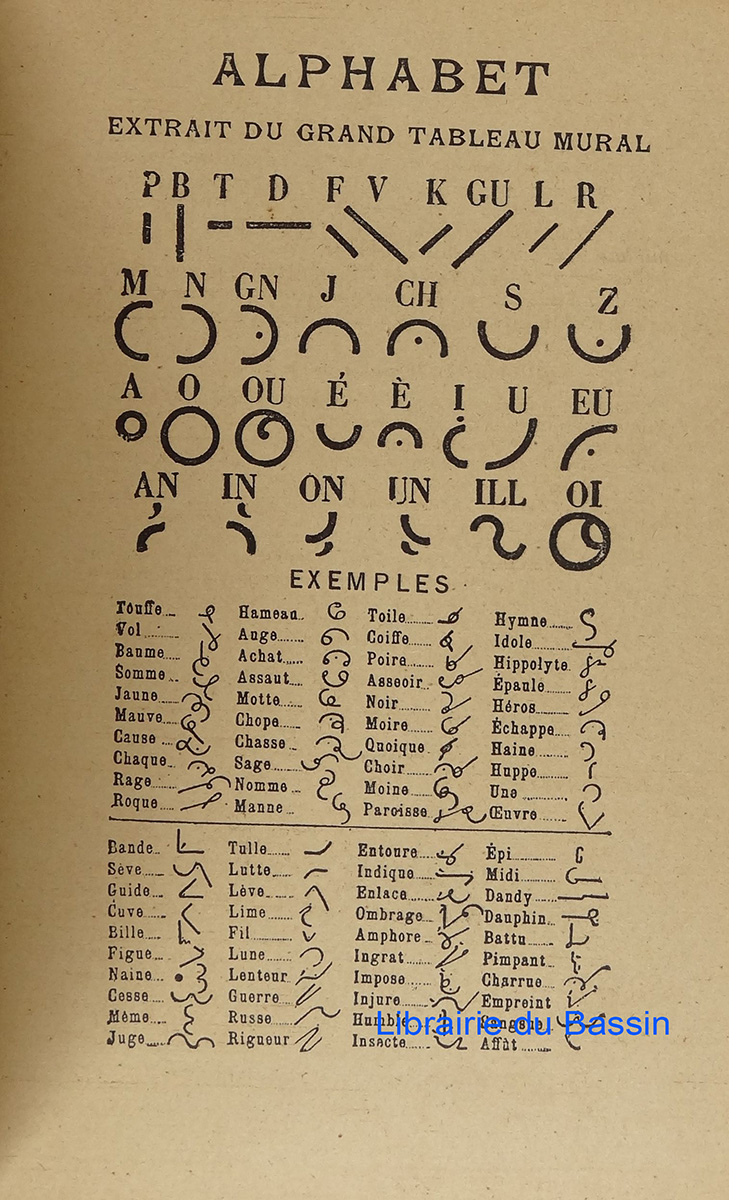 ALPHABET
EXTRAIT DU GRAND TABLEAU MURAL
P B T D F V K GU L R
M N GN J CH S Z
A O OU É È I U EU
AN IN ON UN ILL OI
EXEMPLES
Touffe Hameau Toile Hymne
Vol Ange Coiffe Idole
Baume Achat Poire Hippolyte
Somme Assaut Asseoir Épaule
Jaune Motte Noir Héros
Mauve Chope Moire Échappe
Cause Chasse Quoique Haine
Chaque Sage Choir Huppe
Rage Nomme Moine Une
Roque Manne Paroisse Œuvre
Bande Tulle Entoure Épi
Sève Lutte Indique Midi
Guide Lève Enlace Dandy
Cuve Lime Ombrage Dauphin
Bille Fil Amphore Battu
Figue Lune Ingrat Pimpant
Naine Lenteur Impose Charrue
Cesse Guerre Injure Empreint
Même Russe Humble
Juge Rigueur Insecte Affût
Librairie du Bassin